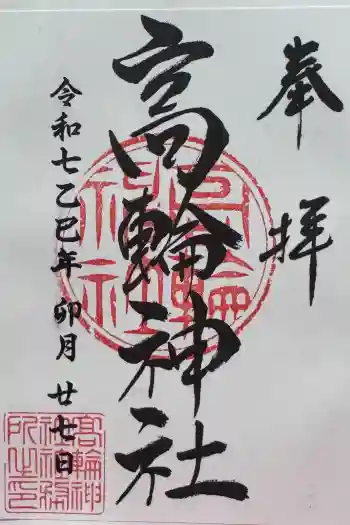 奉拝
高輪神社
令和七乙巳年卯月廿七日
高輪神社
高輪神社社務所之印